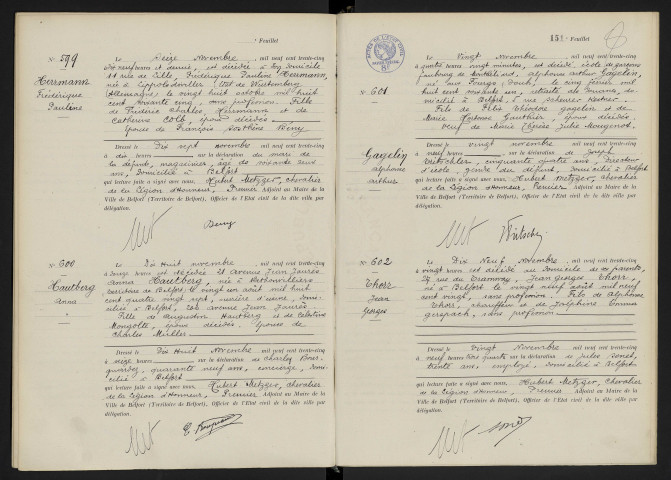 Feuillet
N° 599
Herrmann
Frédérique
Pauline
Le Seize Novembre mil neuf cent trente-cinq
dix neuf heures et demie, est décédée en son domicile
11 rue de Lille, Frédérique Pauline Herrmann,
née à Lippoldsweiler Etat de Wurtemberg
(Allemagne) le vingt huit octobre mil huit
cent soixante cinq, sans profession. Fille
de Frédéric Charles Herrmann et de
Catherine Colb, époux décédés
Epouse de François Bény
Dressé le Dix sept novembre mil neuf cent trente-cinq
à dix heures sur la déclaration du mari de
la défunte, magasinier, âgé de soixante
ans, domicilié à Belfort
qui lecture faite a signé avec nous, Hubert Metzger, chevalier
de la Légion d'Honneur, Premier Adjoint au Maire de la
Ville de Belfort (Territoire de Belfort), Officier de l'Etat civil de la dite ville par
délégation.
Beny
N° 600
Hautberg
Anna
Le Dix Huit novembre mil neuf cent trente-cinq
à heures est décédée 21 Avenue Jean Jaurès
Anna Hautberg, née à Rethonvilliers
territoire de Belfort, le vingt un août mil huit
cent quatre vingt sept, ouvrière d'usine, domi-
ciliée à Belfort, avenue Jean Jaurès
Fille de Augustin Hautberg et de Célestine
Mongotté, époux décédés. Epouse de
Charles Müller
Dressé le Dix Huit Novembre mil neuf cent trente-cinq
à seize heures sur la déclaration de Charles
quarante neuf ans, concierge, domi-
cilié à Belfort
qui lecture faite a signé avec nous, Hubert Metzger, chevalier
de la Légion d'Honneur, Premier Adjoint au Maire de la
Ville de Belfort (Territoire de Belfort), Officier de l'Etat civil de la dite ville par
délégation.
151 Feuillet
N° 601
Gagelin
alphonse
arthur
Le Vingt Novembre mil neuf cent trente-cinq
à quatre heures vingt minutes, est décédé, école de garçons
faubourg de Montbéliard, alphonse arthur Gagelin,
né aux Fourgs, Doubs, le cinq février mil
huit cent soixante un, retraité des Douanes, do-
micilié à Belfort, rue Scheurer Kestner
Fils de Théodore Gagelin et de
Marie Hortense Gauthier, époux décédés.
Veuf de Marie Julie Mougenot
Dressé le vingt novembre mil neuf cent trente-cinq
à neuf heures sur la déclaration de Joseph
Kritschler, cinquante quatre ans, Directeur
d'école, gendre du défunt, domicilié à Belfort
qui lecture faite a signé avec nous, Hubert Metzger, chevalier
de la Légion d'Honneur, Premier Adjoint au Maire de la
Ville de Belfort (Territoire de Belfort), Officier de l'Etat civil de la dite ville par
délégation.
N° 602
Thorr
Jean
Georges
Le Dix Neuf Novembre mil neuf cent trente-cinq
à vingt heures est décédé au domicile de ses parents,
rue Jean Georges Thorr,
né à Belfort le vingt neuf août mil neuf
cent vingt, sans profession. Fils de Alphonse
Thorr, chauffeur et de Delphine Emma
Gerspach, sans profession
Dressé le Vingt Novembre mil neuf cent trente-cinq
à neuf heures trois quarts sur la déclaration de Jules Sonet,
trente ans, employé, domicilié à Belfort
qui lecture faite a signé avec nous, Hubert Metzger, chevalier
de la Légion d'Honneur, Premier Adjoint au Maire de la
Ville de Belfort (Territoire de Belfort), Officier de l'Etat civil de la dite ville par
délégation.